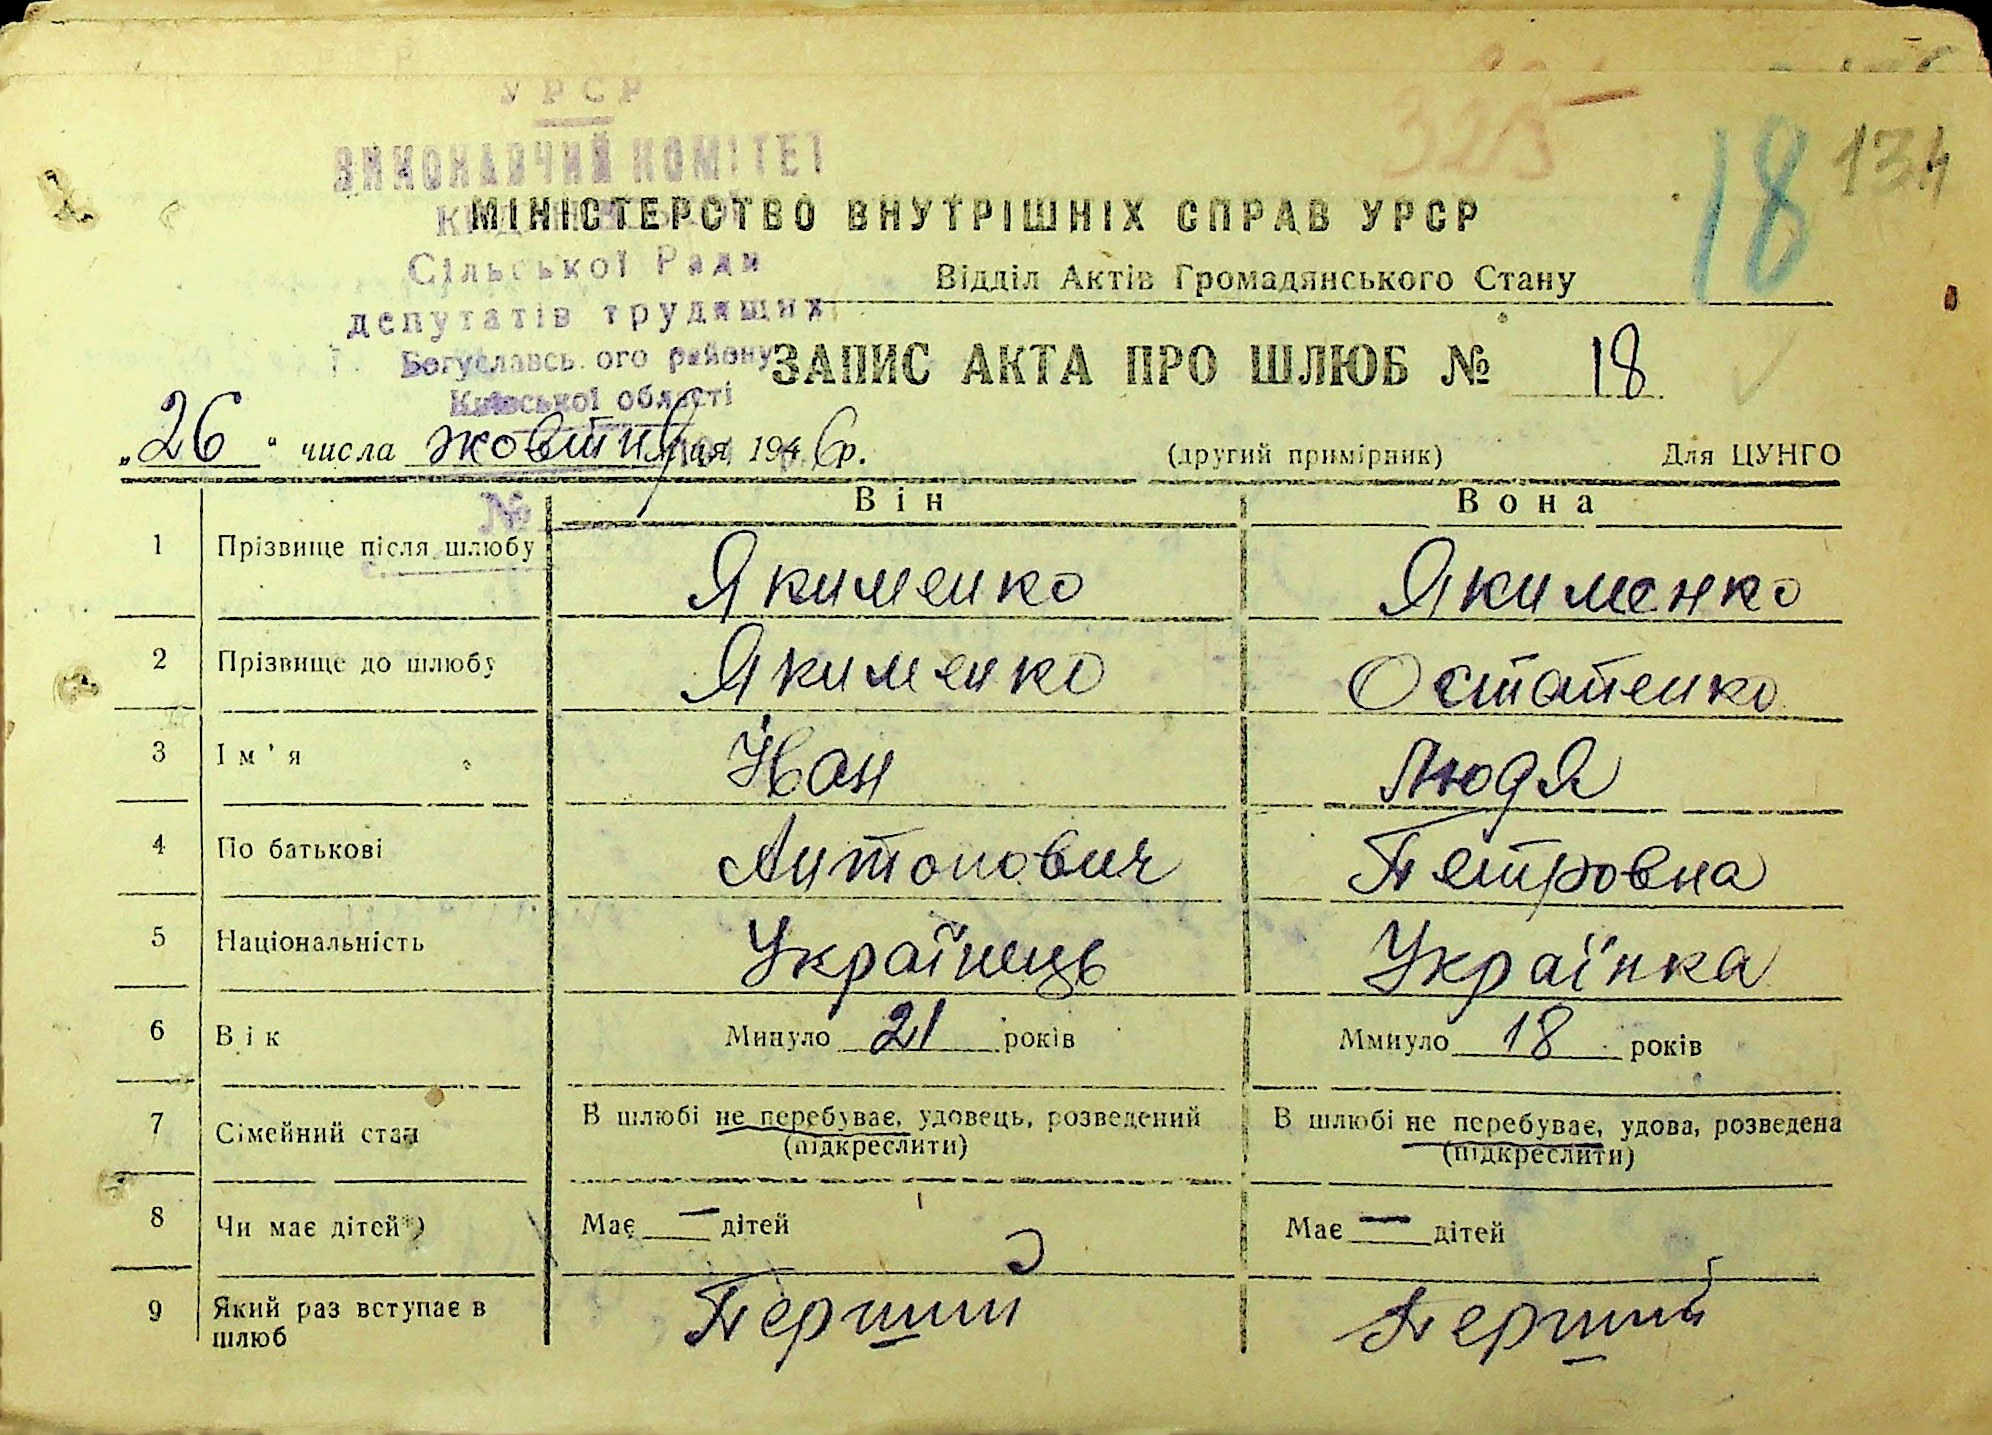 325
18
134
УРСР
ВИКОНАВЧИЙ КОМІТЕТ
МІНІСТЕРСТВО ВНУТРІШНІХ СПРАВ УРСР
Сільської Ради
Відділ Актів Громадянського Стану
депутатів трудящих
Богуславського району
Київської області
ЗАПИС АКТА ПРО ШЛЮБ № 18
„26“ числа жовтня м-ця 1946р. (другий примірник) Для ЦУНГО
№
Він Вона
1 Прізвище після шлюбу Якименко Якименко
2 Прізвище до шлюбу Якименко Остапенко
3 Ім'я Йван Людя
4 По батькові Антонович Петровна
5 Національність Українець Українка
6 Вік Минуло 21 років Ммнуло 18 років
7 Сімейний стан В шлюбі не перебуває, удовець, розведений В шлюбі не перебуває, удова, розведена
(підкреслити) (підкреслити)
8 Чи має дітей*) Має — дітей Має — дітей
9 Який раз вступає в шлюб Перший Перший